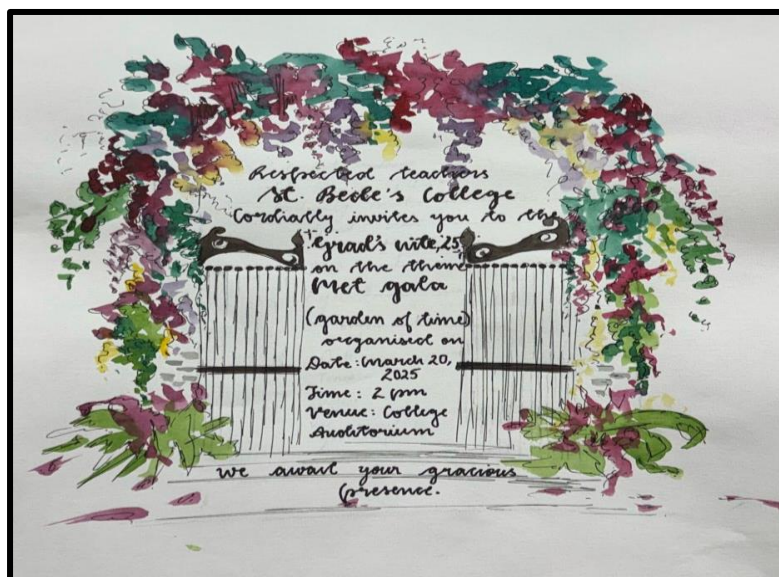 Respected teachers
St. Bede's College
Cordially invites you to the
"Grad's nite, 25"
on the theme
Met gala
(garden of time)
organised on
Date: March 20,
2025
Time: 2 pm
Venue: College
Auditorium
We await your gracious
presence.